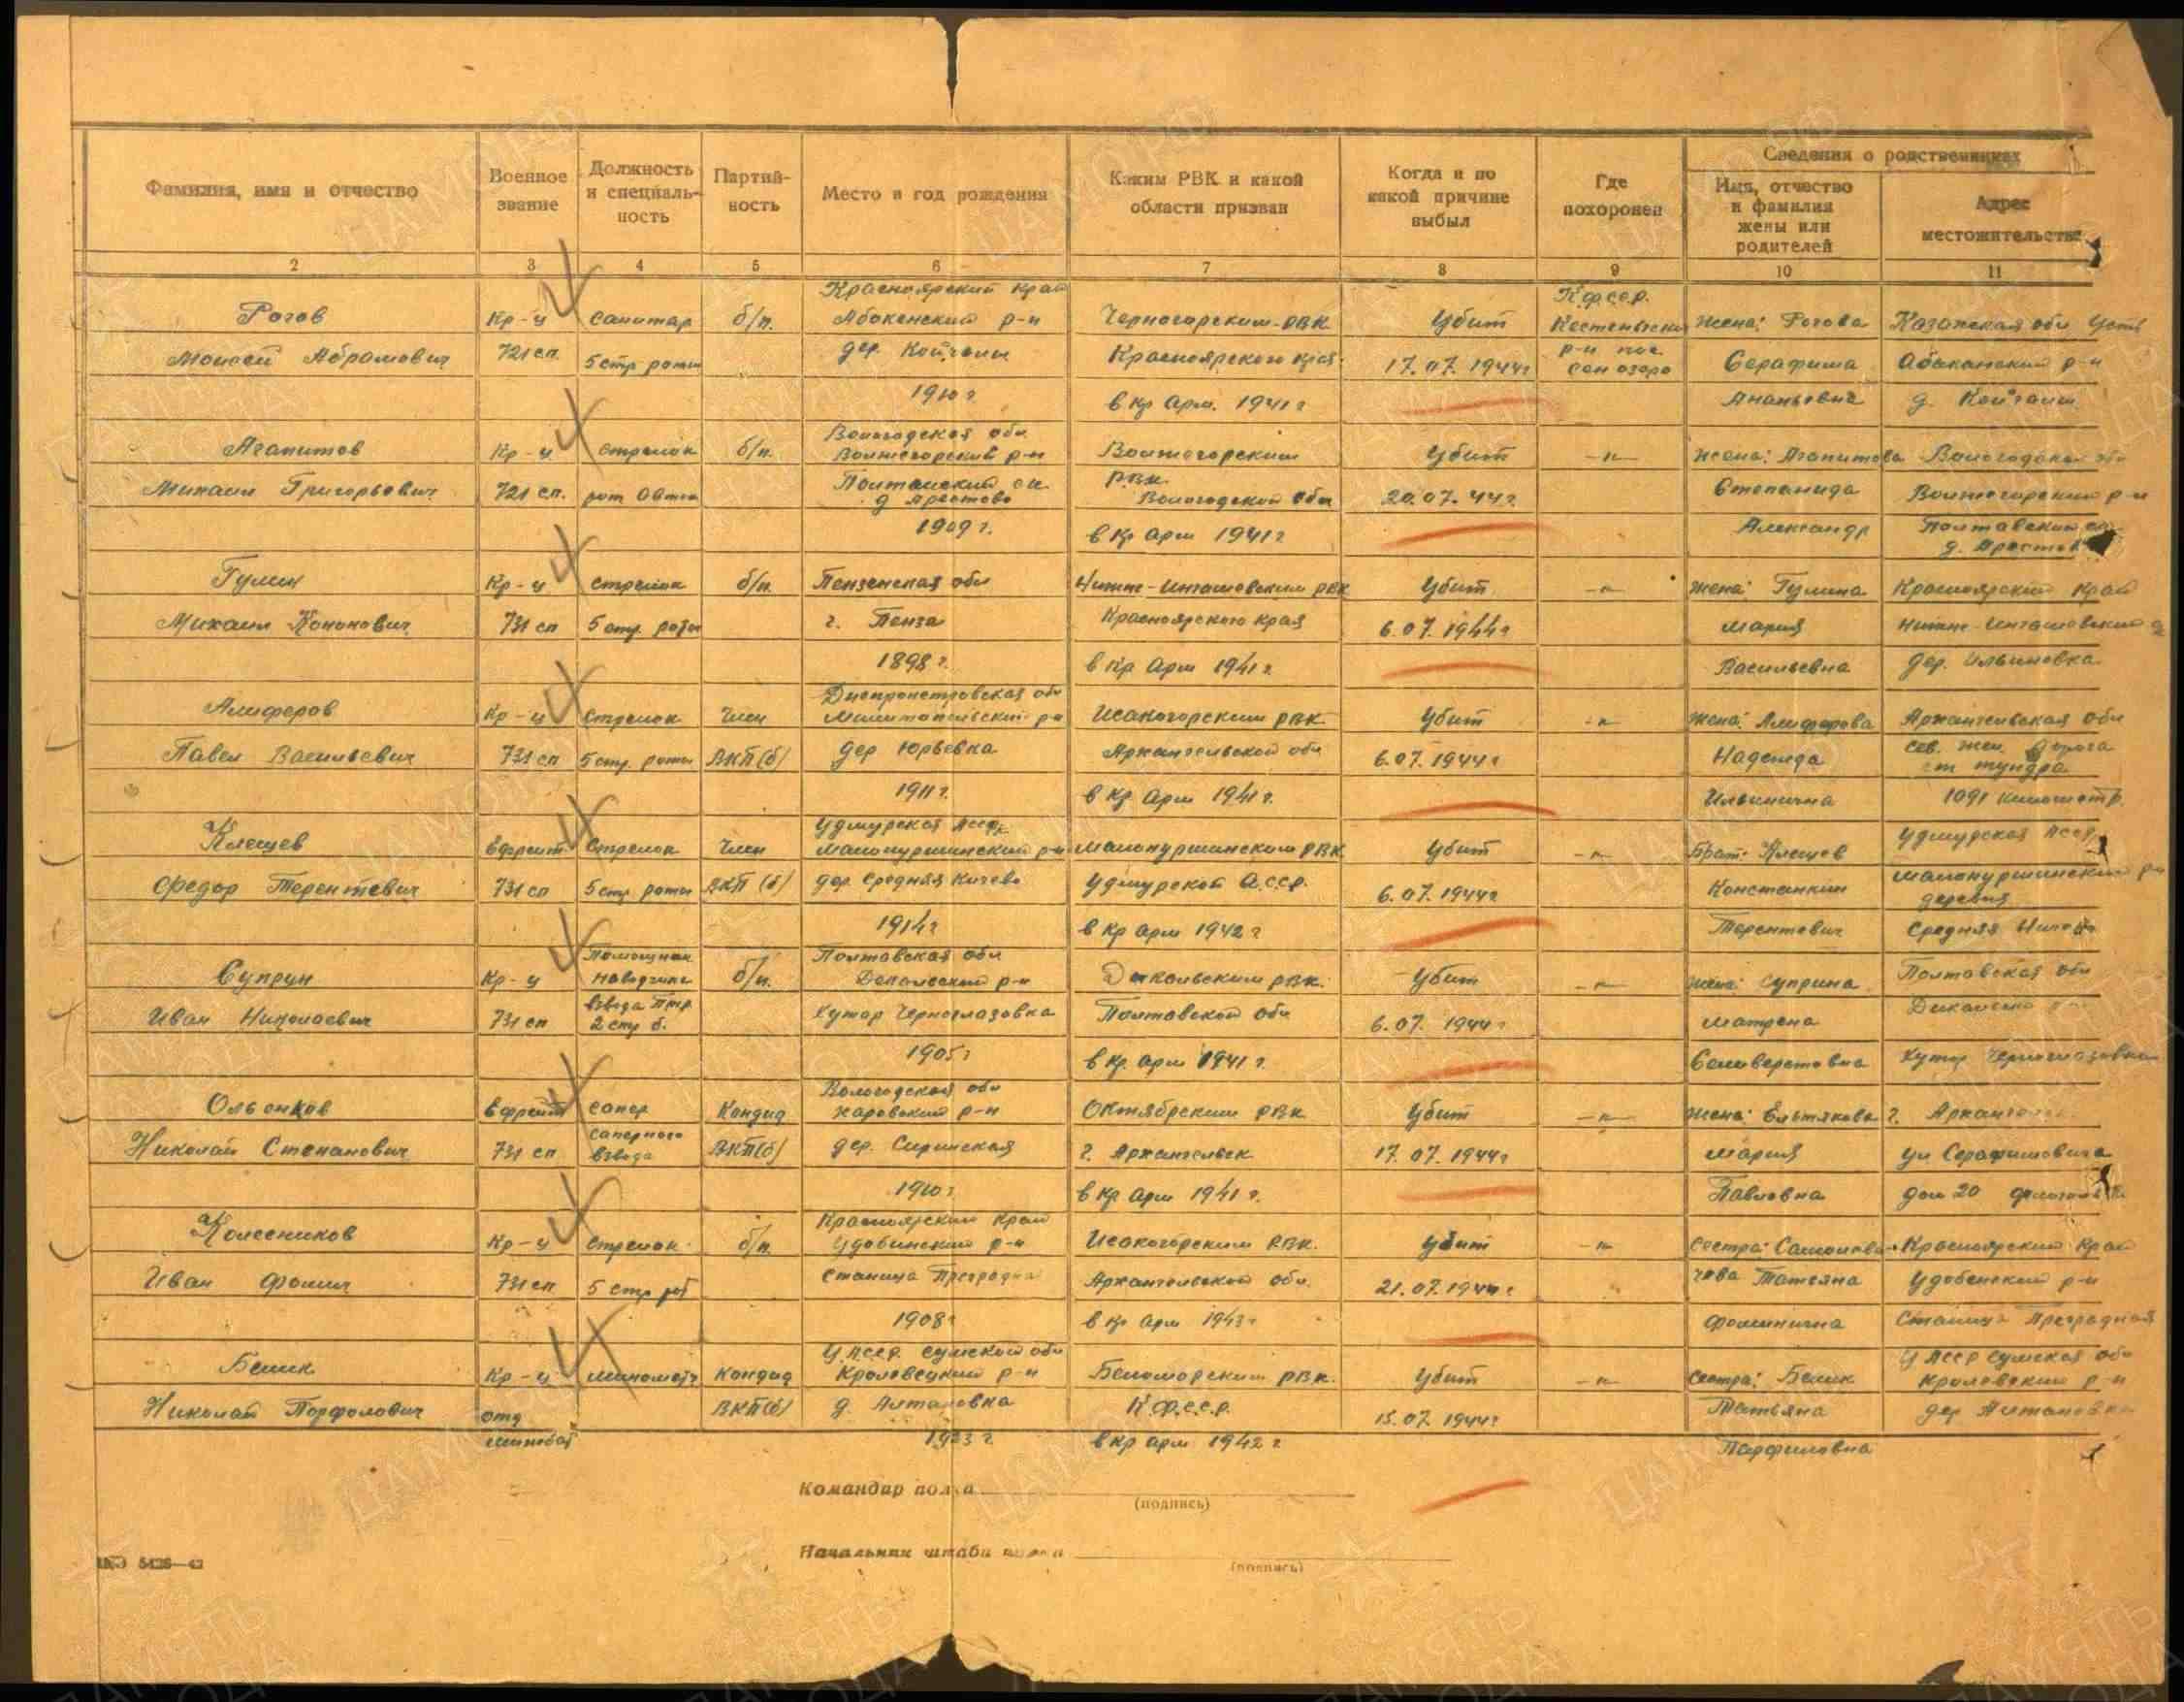 Фамилия, имя и отчество
Военное звание
Должность и специаль-ность
Партий-ность
Место и год рождения
Каким РВК и какой области призван
Когда и по какой причине выбыл
Где похоронен
Сведения о родственниках
Имя, отчество и фамилия жены или родителей
Адрес местожительства
2 3 4 5 6 7 8 9 10 11
Рогов
Моисей Абрамович
Кр-ц
721 сп.
санитар
5 стр роты
б/п.
Красноярский край
Абаканский р-н
дер.
1910 г
Черногорским РВК
Красноярского края
в кр арм. 1941 г
Убит
17.07.1944 г
К.ф.с.с.р.
р-н пос.
сон озеро
Жена: Рогова
Серафима
Ананьевна
Усть
Абаканский р-н
д.
Агапитов
Михаил Григорьевич
Кр-ц
721 сп.
стрелок
рот
б/п.
Вологодская обл
Вытегорский р-н
д
1909 г.
РВК
Вологодской обл
в кр арм 1941 г
Убит
20.07.44 г.
-"-
Жена: Агапитова
Степанида
Александр
Вологодская обл
р-н
д.
Гулин
Михаил Кононович
Кр-ц
731 сп
стрелок
5 стр. роты
б/п.
Пензенская обл
г. Пенза
1898 г.
Нижне-Инташовским РВК
Красноярского края
в кр арм 1941 г.
Убит
6.07.1944 г
-"-
Жена: Гулина
Мария
Васильевна
Красноярский край
дер. Ильиновка
Алиферов
Павел Васильевич
Кр-ц
731 сп
стрелок
5 стр. роты
Член
ВКП(б)
Днепропетровская обл
Мелитопольский р-н
дер Юрьевка
1911 г.
Исакогорским РВК
Архангельской обл
в кр арм 1941 г.
Убит
6.07.1944 г
-"-
Жена: Алиферова
Надежда
Ильинична
Архангельская обл
сев. жел. дорога
ст тундра
1091 километр.
Клещев
Федор Терентьевич
ефрейт.
731 сп
стрелок
5 стр роты
Член
ВКП(б)
Удмурская Асср.
Малопургинский р-н
дер. Средняя
1914 г
Малопургинским РВК
Удмурской А.с.с.р.
в кр арм 1942 г
Убит
6.07.1944 г
-"-
Брат: Клещев
Константин
Терентевич
Удмурская Асср
Малопургинский р-н
деревня
Средняя
Супрун
Иван Николаевич
Кр-ц
731 сп
Помощник
наводчика
взвода птр
2 стр б.
б/п.
Полтавская обл
р-н
хутор Черноглазовка
1905 г
Диканьским РВК.
Полтавской обл
в кр. арм 1941 г.
Убит
6.07.1944 г
-"-
Жена: Суприна
Матрена
Селиверстовна
Полтавская обл
хутор Черноглазовка
Ольонков
Николай Степанович
ефрейт
731 сп
сапер
саперного
взвода
Кандид
ВКП(б)
Вологодская обл
Харовский р-н
дер.
1910 г
Октябрским РВК
г. Архангельск
в кр арм 1941 г.
Убит
17.07.1944 г
-"-
Жена: Ельтякова
Мария
Павловна
г. Архангельск
ул Серафимовича
дом 20
Колесников
Иван Фомич
Кр-ц
731 сп
стрелок
5 стр рот
б/п.
Красноярский край
р-н
станица Преградная
1908 г
Исакогорским РВК.
Архангельской обл.
в кр арм 1943 г
Убит
21.07.1944 г
-"-
Сестра:
Татьяна
Фоминична
Красноярский край
р-н
станица Преградная
Белик
Николай Порфолович
Кр-ц
отд
минбат
минометч
Кандид
ВКП(б)
У.Асср. Сумской обл
Кролевецкий р-н
д.
1923 г.
Беломорским РВК.
К.ф.с.с.р.
в кр арм 1942 г
Убит
15.07.1944 г
-"-
Сестра: Белик
Татьяна
Парфиловна
У Асср Сумская обл
р-н
дер
Командир полка
(подпись)
Начальник штаба полка
(подпись)